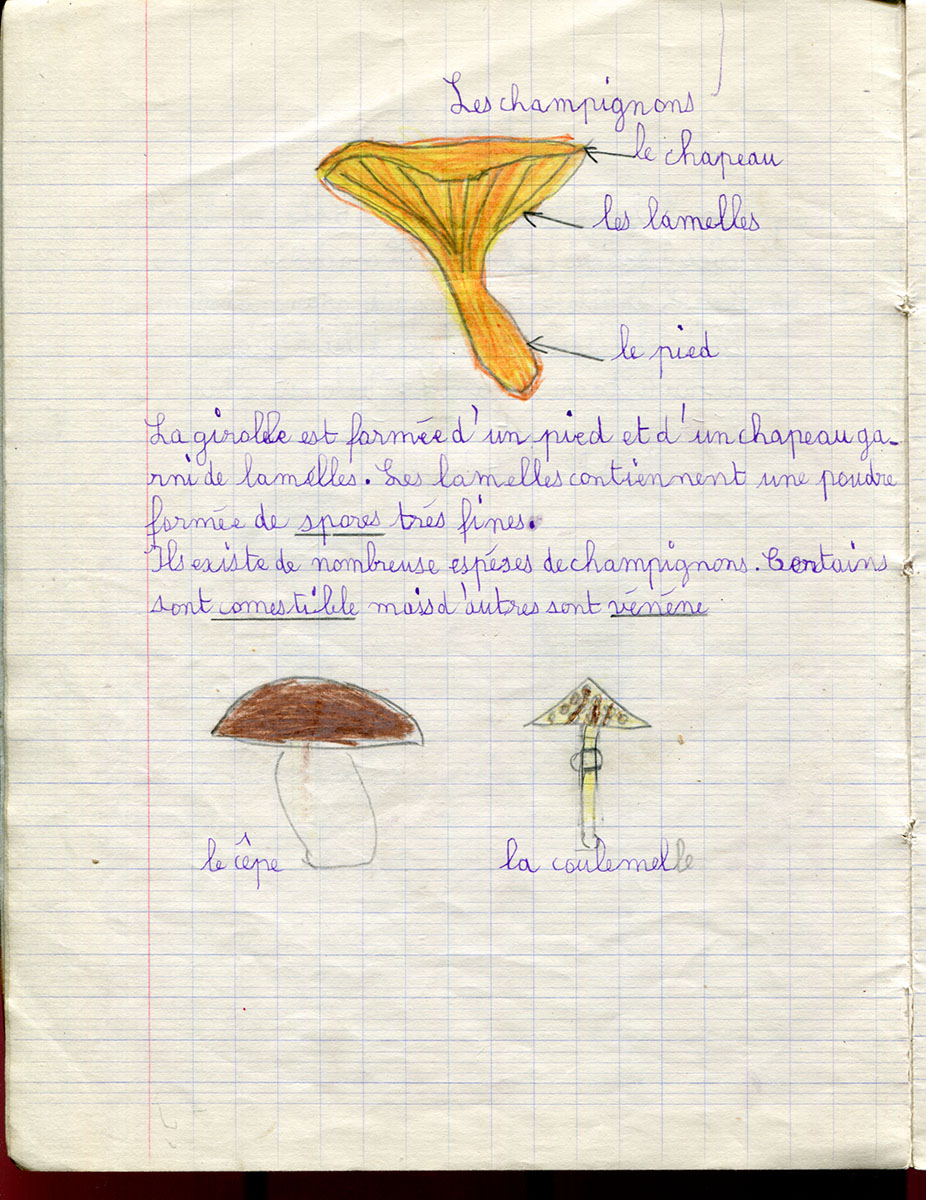 Les champignons
le chapeau
les lamelles
le pied
La girolle est formée d'un pied et d'un chapeau ga-
rni de lamelles. Les lamelles contiennent une poudre
formée de spores trés fines.
Ils existe de nombreuse espéses de champignons. Certains
sont comestible mais d'autres sont vénéne
le cêpe
la coulemelle